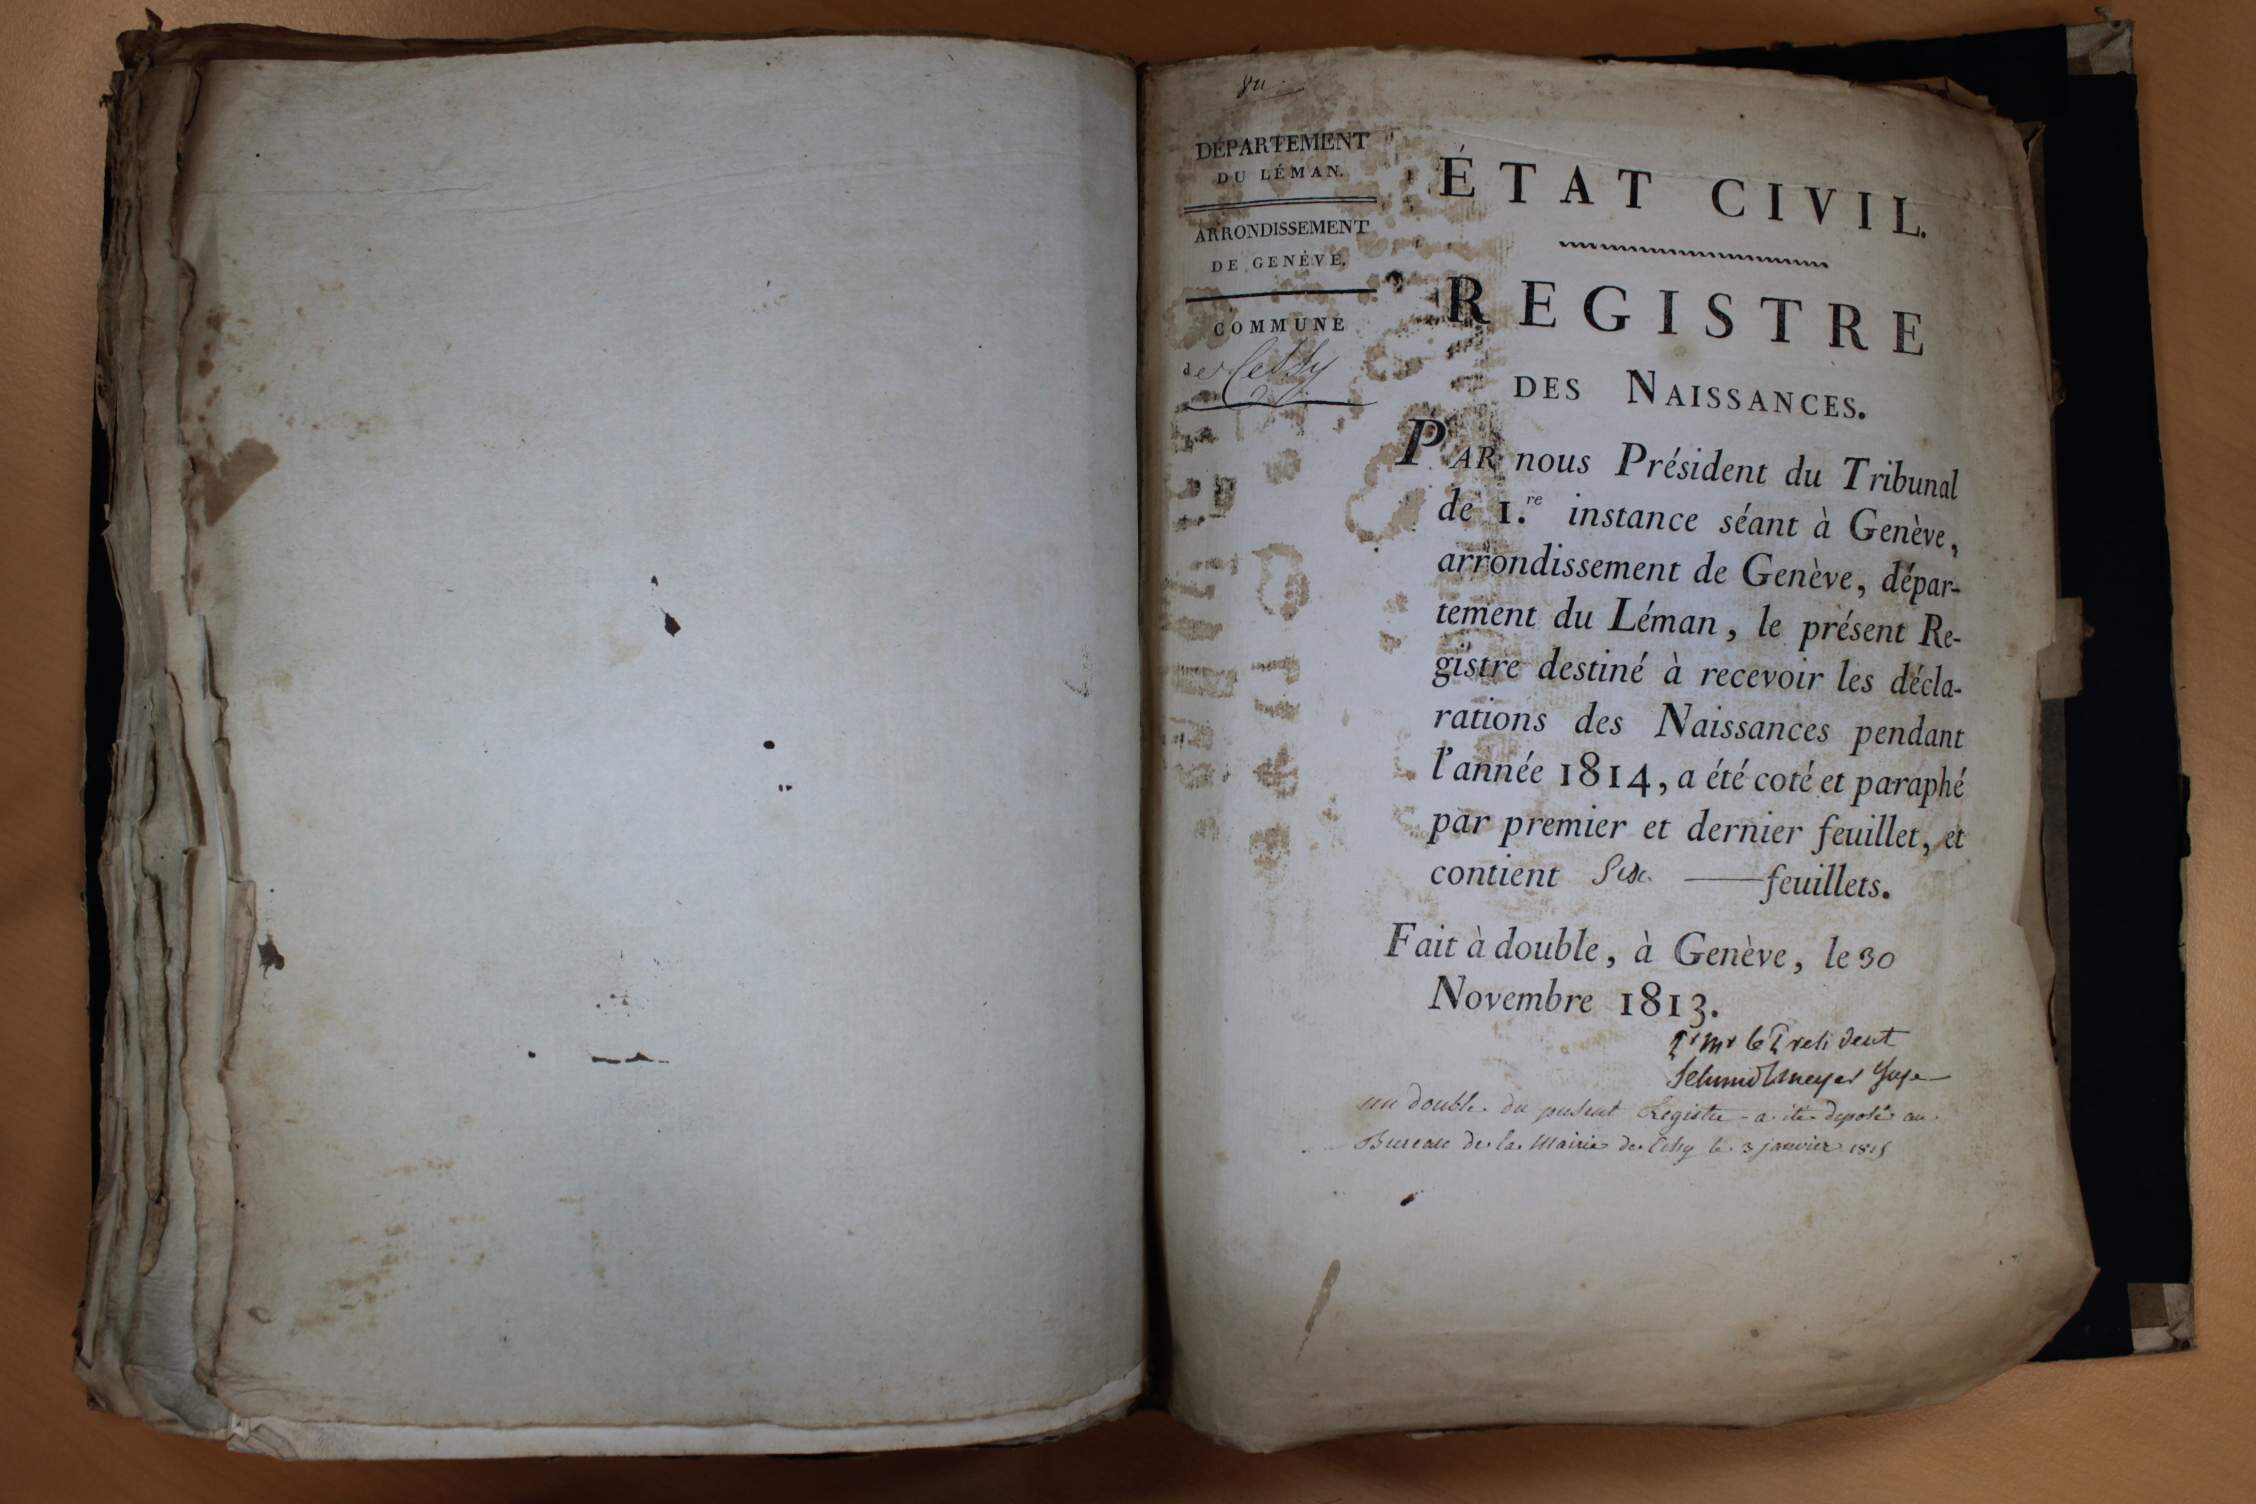 DÉPARTEMENT
DU LÉMAN.
ARRONDISSEMENT
DE GENÈVE.
COMMUNE
de Cessy
ÉTAT CIVIL.
REGISTRE
DES NAISSANCES.
PAR nous Président du Tribunal
de 1.re instance séant à Genève,
arrondissement de Genève, dépar-
tement du Léman, le présent Re-
gistre destiné à recevoir les décla-
rations des Naissances pendant
l'année 1814, a été coté et paraphé
par premier et dernier feuillet, et
contient Six feuillets.
Fait à double, à Genève, le 30
Novembre 1813.
pr Mr le President
Schmidtmeyer Juge
un double du présent Registre a été déposé au
Bureau de la Mairie de Cessy le 3 janvier 1815